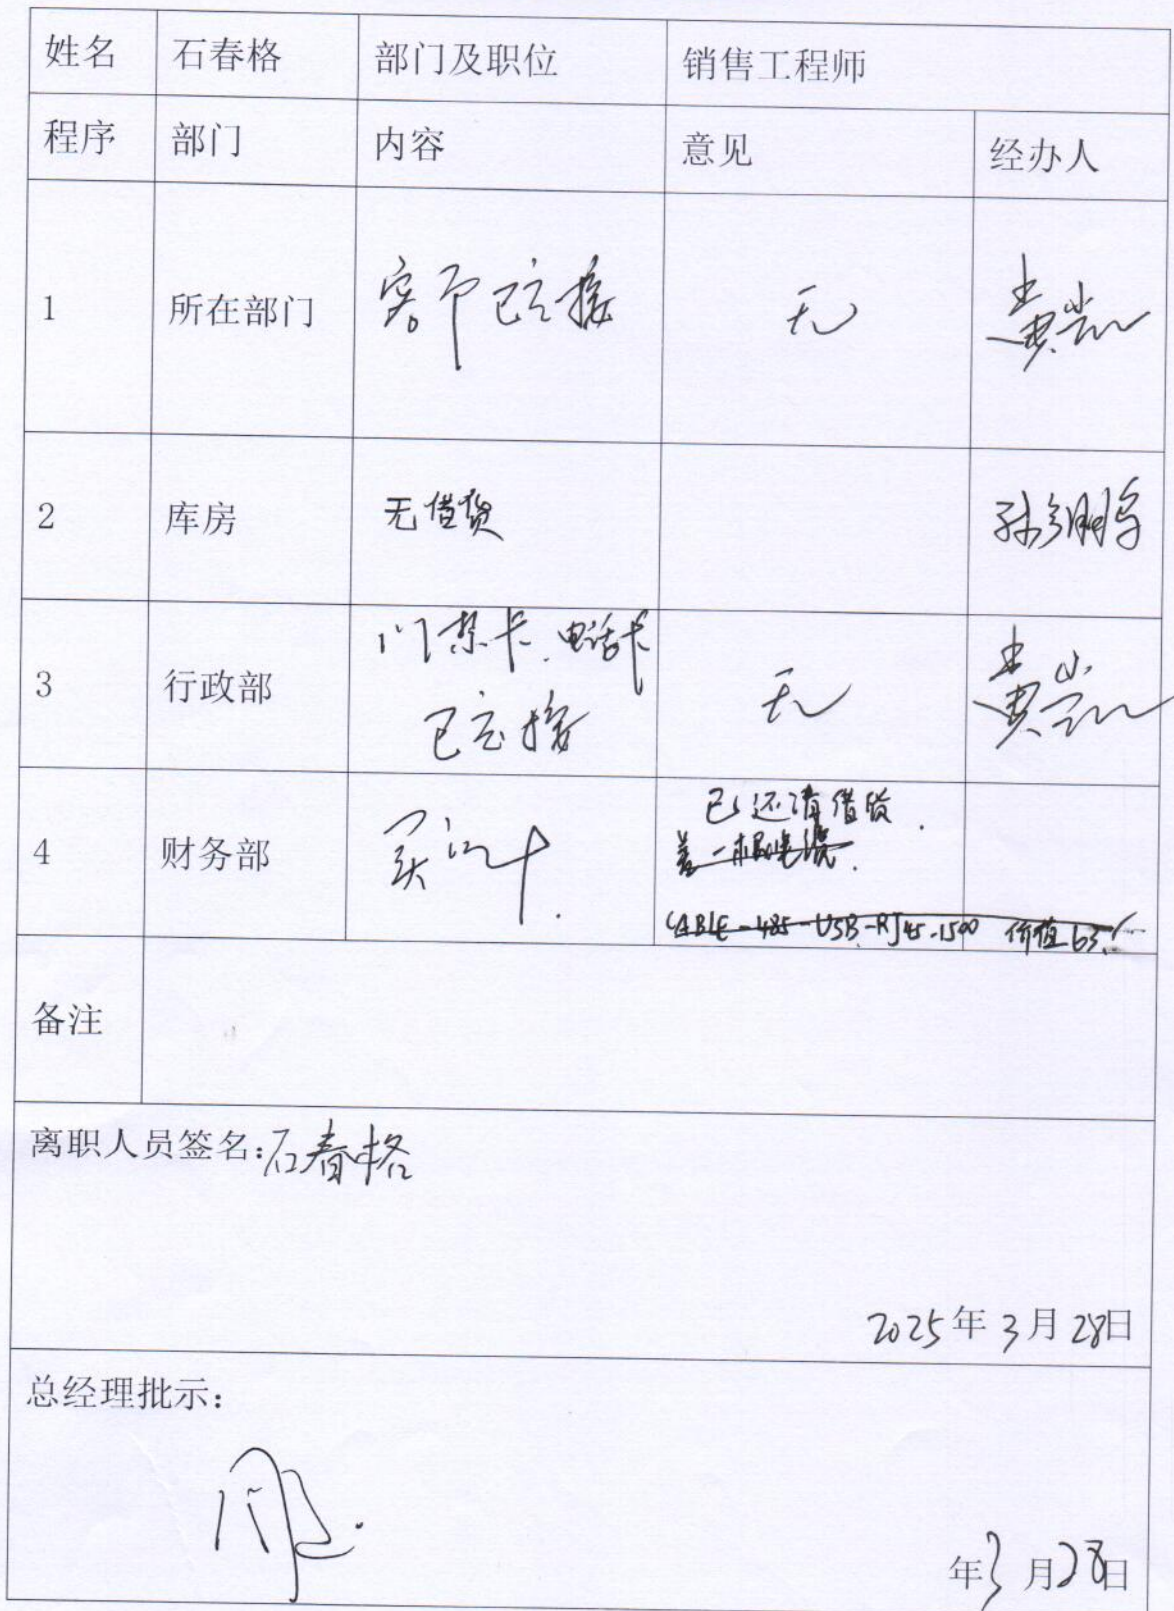 姓名 石春格 部门及职位 销售工程师
程序 部门 内容 意见 经办人
1 所在部门 客户已交接 无
2 库房 无借货
3 行政部 门禁卡、电话卡 无
已交接
4 财务部 已还清借货.
差一根电缆.
CABLE-485-USB-RJ45-1500 价值 63.
备注
离职人员签名:石春格
2025年3月28日
总经理批示:
年3月28日